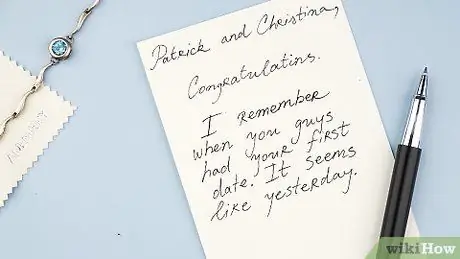 Patrick and Christina,
Congratulatins.
I remember
when you guys
had your first
date. It seems
like yesterday.
wikiHow